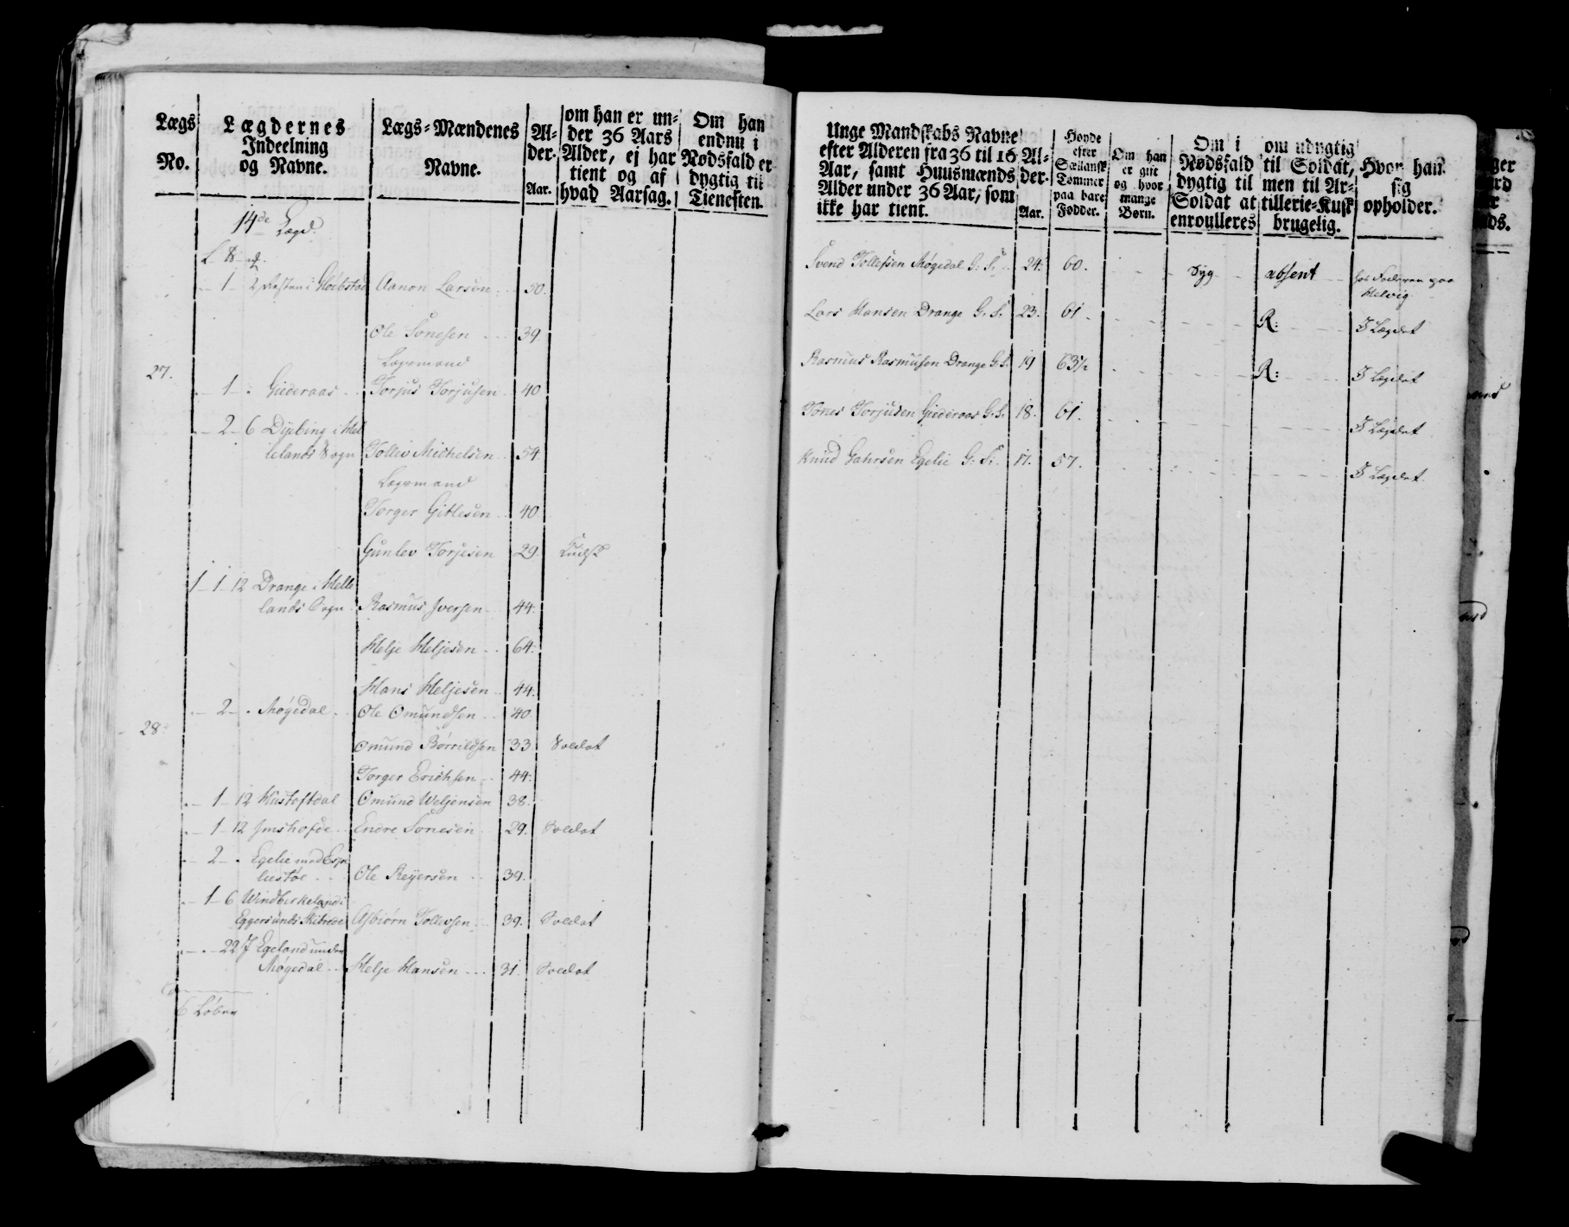 Lægs No.
Lægdernes Indeelning og Navne.
Lægs-Mændenes Navne.
Alder. Aar.
om han er under 36 Aars Alder, ej har tient og af hvad Aarsag.
Om han endnu i Nødsfald er dygtig til Tienesten.
14de Lægd.
1 2 Aanon Larsen 50.
Ole Tonesen 39
Lægsmand
27.
1 Guderaas Torjus Torjusen 40
2 6 Dybing i Hel
lelands Sogn Tollev Michelsen 54
Lægsmand
Torger Gitlesen 40
Gunlev Torjesen 29 Kudsk
1 1 12 Drange i Helle
lands Sogn Rasmus Iversen 44.
Helje Heljesen 64.
Hans Heljesen 44.
2 Møgedal Ole Omundsen 40
28
Omund Børrildsen 33 Soldat
Torger Erichsen 44.
1 12 Omund Weljensen 38.
1 12 Endre Tonesen 29. Soldat
2 Egelie med
Ole Reyersen 39.
1 6 Windbirkeland i
Eggersunds Asbiørn Tollevsen 39. Soldat
22 Egeland under
Møgedal Helje Hansen 31. Soldat
6 Løber
Unge Mandskabs Navne efter Alderen fra 36 til 16 Aar, samt Huusmænds Alder under 36 Aar, som ikke har tient.
Alder. Aar.
Høyde efter Sællansk Tommer paa bare Fødder.
Om han er gift og hvor mange Børn.
Om i Nødsfald dygtig til Soldat at enroulleres
om udygtig til Soldat, men til Artillerie-Kusk brugelig.
Hvor han sig opholder.
Svend Tollefsen Møgedal G. S. 24. 60. Syg absent
Lars Hansen Drange G. S. 23. 61. R: I Lægdet
Rasmus Rasmusen Drange G. S. 19 63½ R: I Lægdet
Tones Torjusen Guderaas G. S. 18. 61. I Lægdet
Knud Egelie G. S. 17. 57. I Lægdet